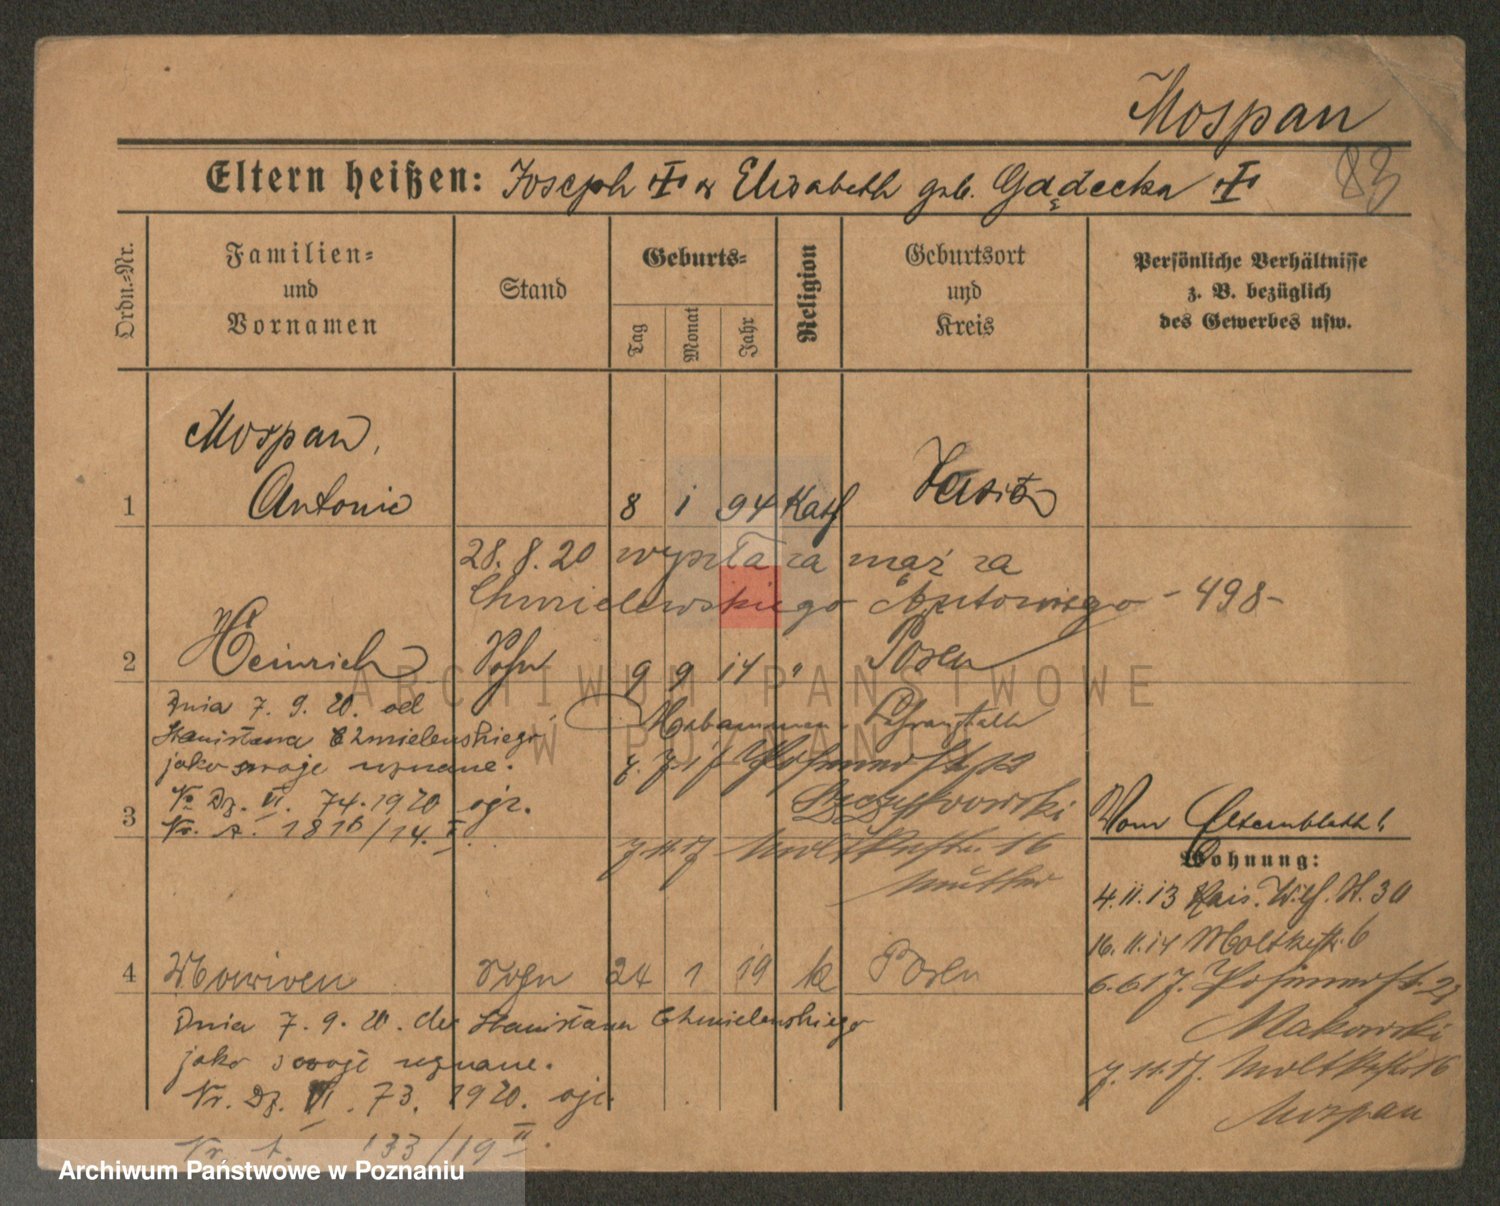 Mospan
83
Eltern heißen: Joseph & Elisabeth geb. Gądecka
Ordn.-Nr.
Familien-
und
Vornamen
Stand
Geburts-
Tag
Monat
Jahr
Religion
Geburtsort
und
Kreis
Persönliche Verhältnisse
z. B. bezüglich
des Gewerbes usw.
Mospan,
1 Antonie 8 1 94 Kath
28.8.20 wyszła za mąż za
Chmielewskiego Antoniego - 498-
2 Heinrich Sohn 9 9 14 " Posen
Dnia 7. 9. 20. od
Stanisława Chmielewskiego,
jako swoje uznane.
Nr Dz. VI. 74. 1920
Nr. A. 1816/14. I.
Hebammen Lehranstalt
3
Vom Elternblatt!
Wohnung:
7.11.17 Moltkestr. 16
Mutter
4.11.13 Kais. Wilh. St. 30
16.11.14 Moltkestr. 6
6.6.17.
Makowski
7.11.17. Moltkestr 16
Mospan
4 Sohn 24 1 19 k Posen
Dnia 7. 9. 20. Stanisława Chmielewskiego
jako swoje uznane.
Nr. Dz. VI. 73. 1920.
Nr. A. 133/19 II.
ARCHIWUM PAŃSTWOWE
W POZNANIU
Archiwum Państwowe w Poznaniu